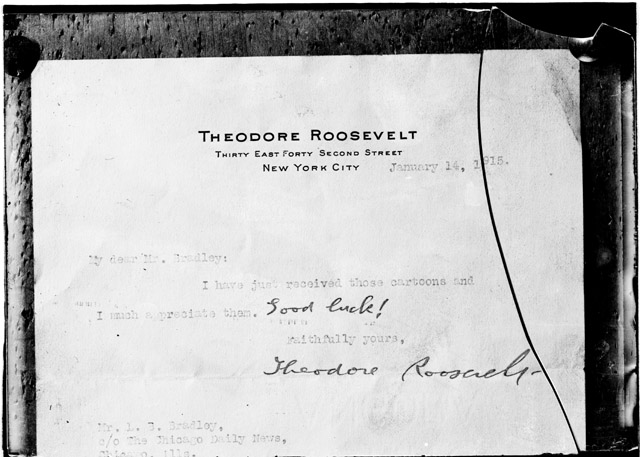 THEODORE ROOSEVELT
THIRTY EAST FORTY SECOND STREET
NEW YORK CITY
January 14, 1915.
My dear Mr. Bradley:
I have just received those cartoons and
I much appreciate them. Good luck!
Faithfully yours,
Theodore Roosevelt
Mr. L. D. Bradley,
c/o The Chicago Daily News,
Chicago, Ills.